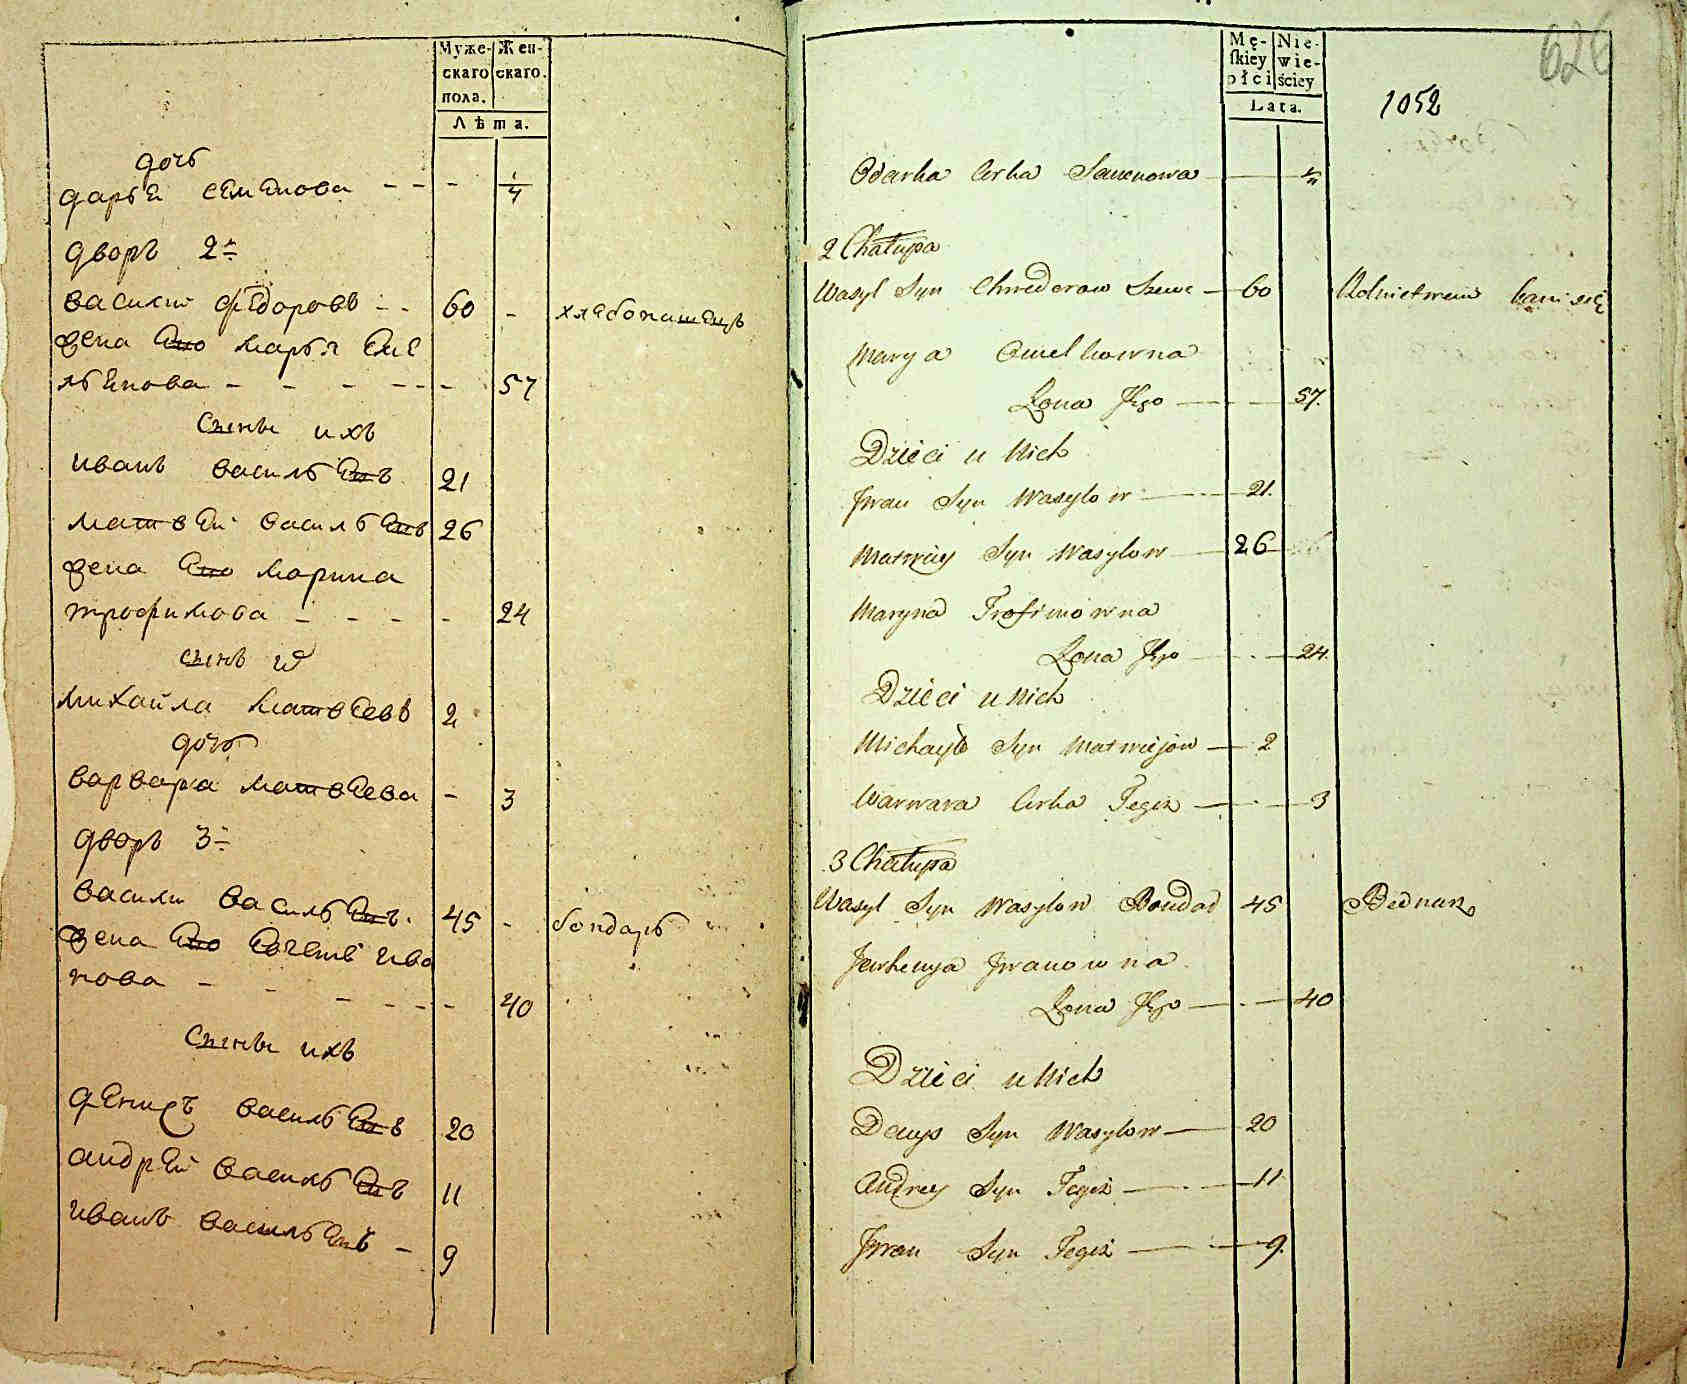 Муже-
скаго
пола.
Жен-
скаго.
Лѣта.
дочь
дарья семенова - - - 1/4
дворъ 2й
василий федоровъ - - 60 - хлебопашецъ
жена ево марья еме
льянова - - - - - - 57
сыны ихъ
иванъ васильевъ 21
матвей васильевъ 26
жена ево марина
трофимова - - - - 24
сынъ
михайла матвеевъ 2
дочь
варвара матвеева - 3
дворъ 3й
василий васильевъ. 45 - бондарь
жена ево евгения ива
нова - - - - - - 40
сыны ихъ
денисъ васильевъ 20
андрей васильевъ 11
иванъ васильевъ - 9
626
1052
Mę-
skiey
płci
Nie-
wie-
ściey
Lata.
Odarka Crka Semenowa
2 Chałupa
Wasyl Syn Chwedorow Szewc 60 Rolnictwem bawi się
Marya Omelkowna
Żona Jego 57.
Dzieci u Nich
Jwan Syn Wasylow 21.
Matwiey Syn Wasylow 26
Maryna Trofimowna
Żona Jego 24.
Dzieci u Nich
Michayło Syn Matwiejow 2
Warwara Crka Tegoż 3
3 Chałupa
Wasyl Syn Wasylow Bondar 45 Bednarz
Jewhenya Jwanowna
Żona Jego 40
Dzieci u Nich
Denys Syn Wasylow 20
Andrey Syn Tegoż 11
Jwan Syn Tegoż 9.